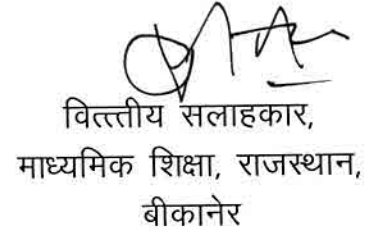 वित्त्तीय सलाहकार,
माध्यमिक शिक्षा, राजस्थान,
बीकानेर